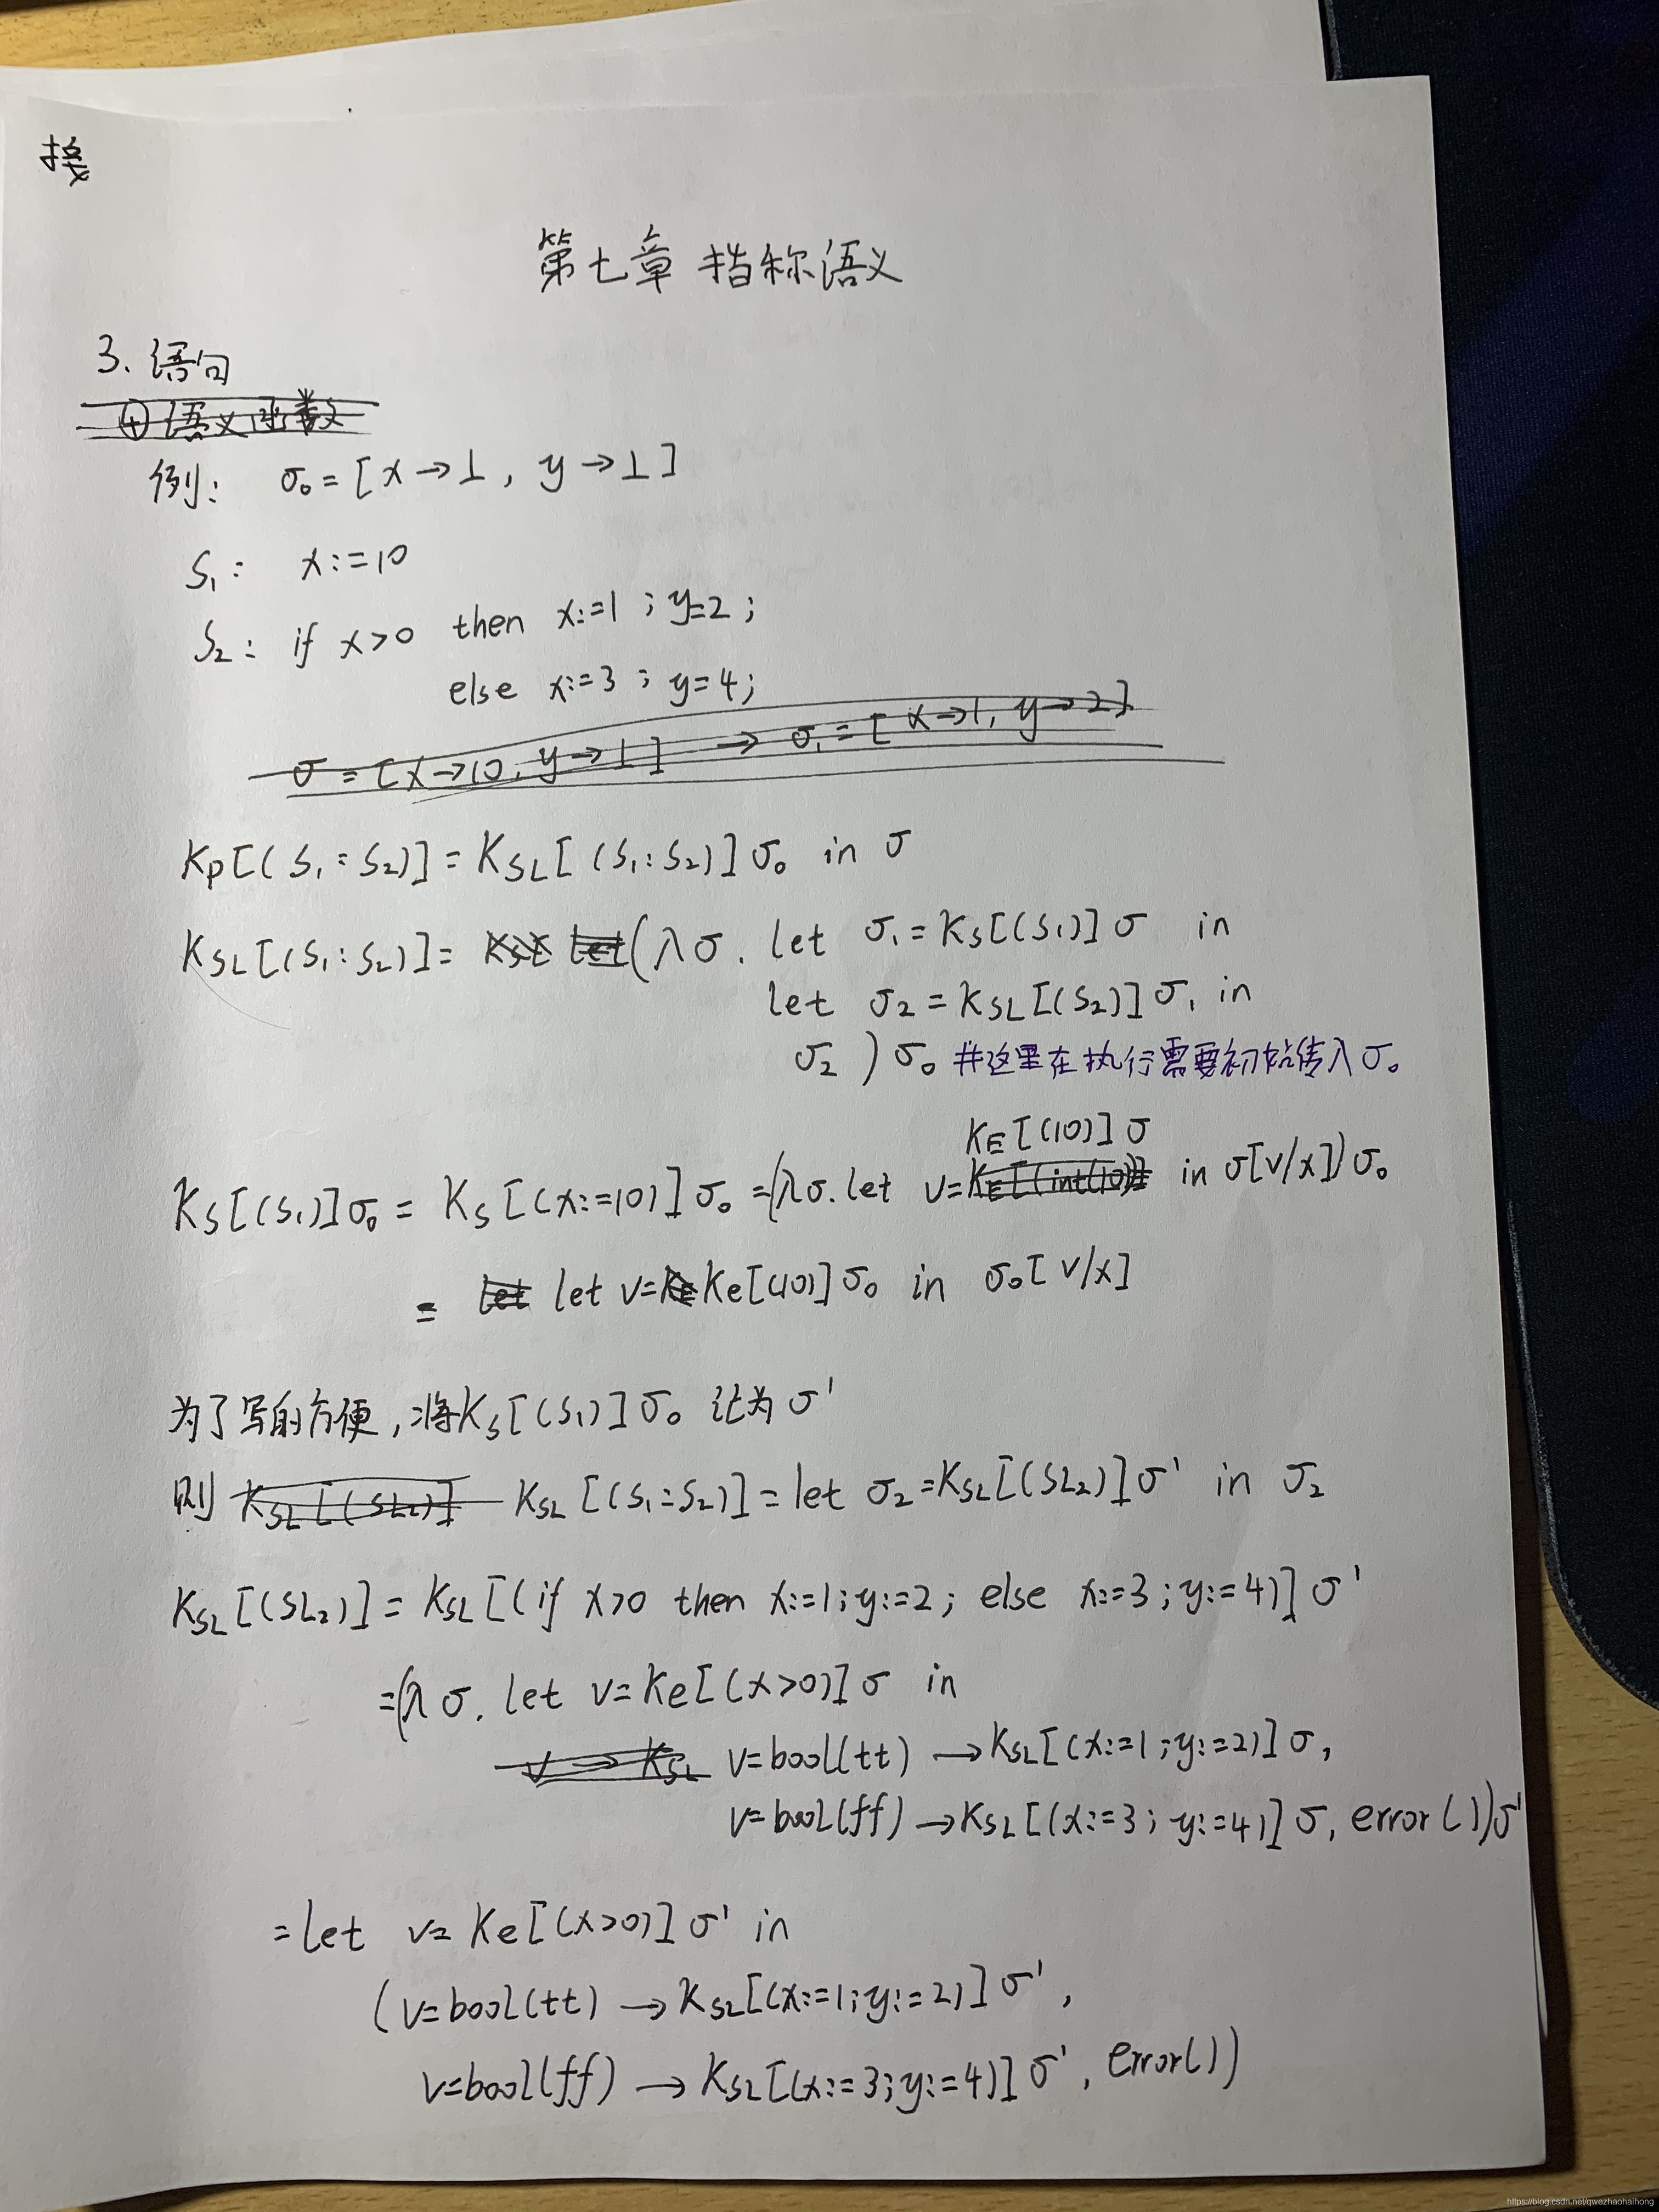 第七章 指称语义
3. 语句
④语义函数
例: σ₀ = [x→⊥, y→⊥]
S₁: x:=10
S₂: if x>0 then x:=1; y=2;
else x:=3; y=4;
σ = [x→10, y→⊥] → σ₁ = [x→1, y→2]
Kp[(S₁:S₂)] = KSL[(S₁:S₂)]σ₀ in σ
KSL[(S₁:S₂)] = (λσ. let σ₁ = KS[(S₁)]σ in
let σ₂ = KSL[(S₂)]σ₁ in
σ₂)σ₀ #这里在执行需要初始传入σ₀
KE[(10)]σ
KS[(S₁)]σ₀ = KS[(x:=10)]σ₀ = (λσ. let v=KE[(int(10)] in σ[v/x])σ₀
= let let v=Ke[(10)]σ₀ in σ₀[v/x]
为了写的方便,将KS[(S₁)]σ₀ 记为σ'
则 KSL[(SL₂)] KSL[(S₁:S₂)] = let σ₂=KSL[(SL₂)]σ' in σ₂
KSL[(SL₂)] = KSL[(if x>0 then x:=1; y:=2; else x:=3; y:=4)]σ'
=(λσ. let v=Ke[(x>0)]σ in
v → KSL v=bool(tt) → KSL[(x:=1; y:=2)]σ,
v=bool(ff) → KSL[(x:=3; y:=4)]σ, error())σ'
=let v= Ke[(x>0)]σ' in
(v=bool(tt) → KSL[(x:=1; y:=2)]σ',
v=bool(ff) → KSL[(x:=3; y:=4)]σ', error())
https://blog.csdn.net/qwezhaohaihong